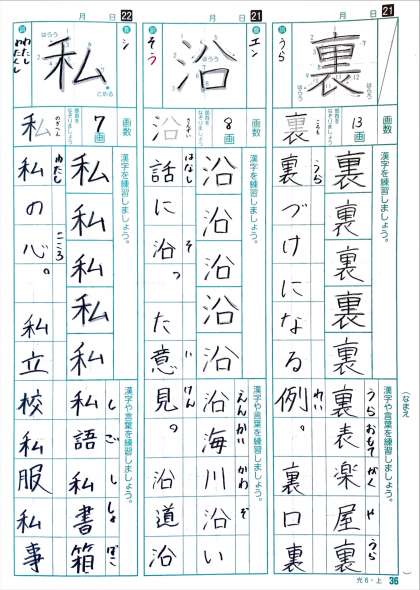 月 日 21
訓 うら
裏
はらう
はらう
画数 13画
部首をなぞりましょう。 裏 ころも
漢字を練習しましょう。
裏裏裏裏裏
うら
裏づけになる
漢字や言葉を練習しましょう。
うらおもて がくや うら
裏表楽屋裏
れい
例。裏口裏
月 日 21
音 エン
訓 そう
沿
画数 8画
部首をなぞりましょう。 沿 さんずい
漢字を練習しましょう。
沿沿沿沿沿
はなし そ い
話に沿った意
漢字や言葉を練習しましょう。
えんかい かわぞ
沿海川沿い
けん
見。沿道沿
月 日 22
音 シ
訓 わたし わたくし
私
はらう
とめる
画数 7画
部首をなぞりましょう。 私 のぎへん
漢字を練習しましょう。
私私私私私
わたし こころ
私の心。私立
漢字や言葉を練習しましょう。
しご ししょばこ
私語私書箱
校私服私事
(なまえ )
光6・上 36